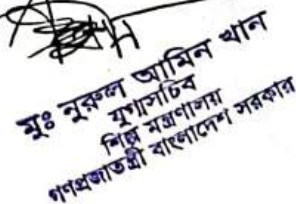 মুঃ নুরুল আমিন খান
যুগ্মসচিব
শিল্প মন্ত্রণালয়
গণপ্রজাতন্ত্রী বাংলাদেশ সরকার